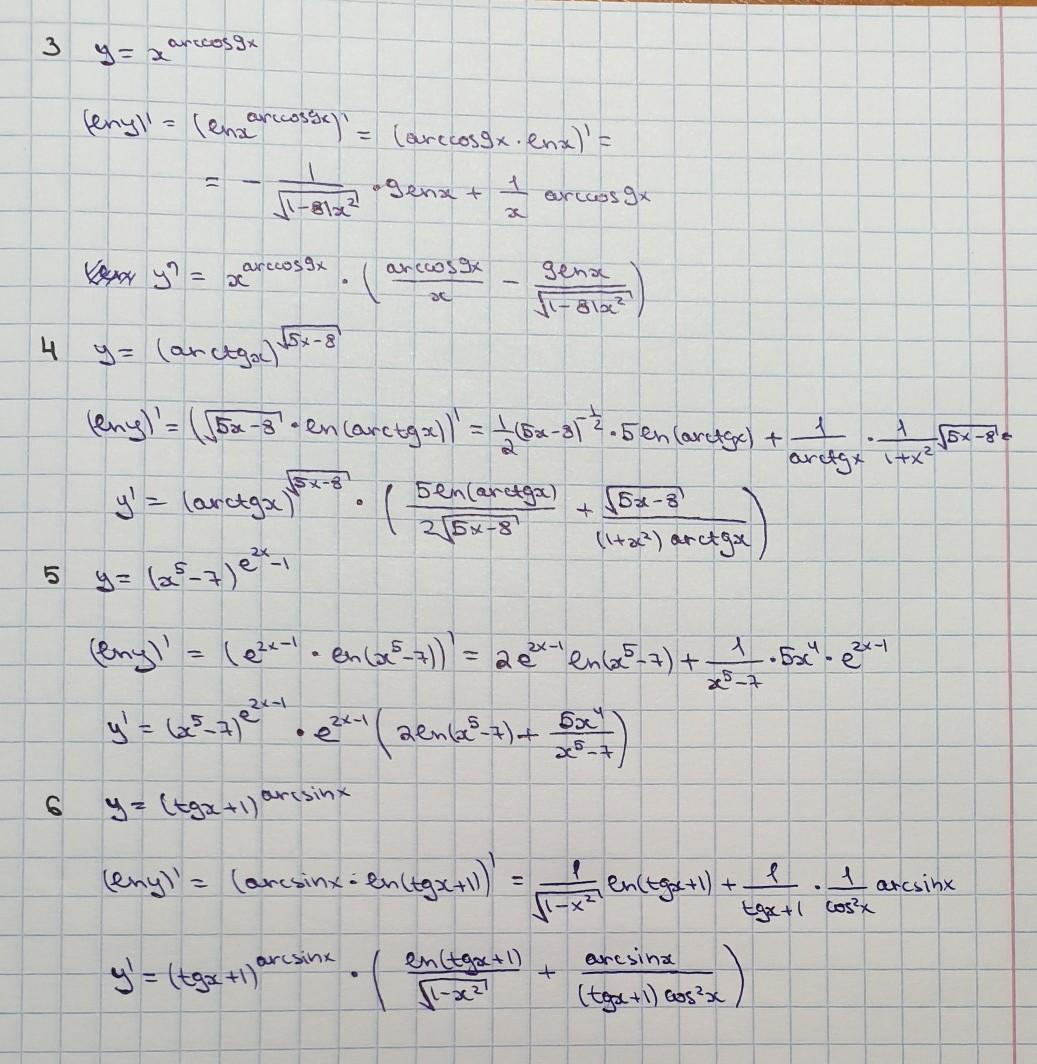 3 y = x^(arccos9x)
(lny)' = (lnx^(arccos9x))' = (arccos9x · lnx)' =
= - 1/√(1-81x²) · 9lnx + 1/x arccos9x
y' = x^(arccos9x) · (arccos9x/x - 9lnx/√(1-81x²))
4 y = (arctgx)^(√(5x-8))
(lny)' = (√(5x-8) · ln(arctgx))' = 1/2(5x-8)^(-1/2) · 5ln(arctgx) + 1/arctgx · 1/(1+x²) √(5x-8) =
y' = (arctgx)^(√(5x-8)) · (5ln(arctgx)/(2√(5x-8)) + √(5x-8)/((1+x²) arctgx))
5 y = (x⁵-7)^(e^(2x)-1)
(lny)' = (e^(2x-1) · ln(x⁵-7))' = 2e^(2x-1) ln(x⁵-7) + 1/(x⁵-7) · 5x⁴ · e^(2x-1)
y' = (x⁵-7)^(e^(2x-1)) · e^(2x-1) (2ln(x⁵-7) + 5x⁴/(x⁵-7))
6 y = (tgx+1)^(arcsinx)
(lny)' = (arcsinx · ln(tgx+1))' = 1/√(1-x²) ln(tgx+1) + 1/(tgx+1) · 1/cos²x arcsinx
y' = (tgx+1)^(arcsinx) · (ln(tgx+1)/√(1-x²) + arcsinx/((tgx+1) cos²x))